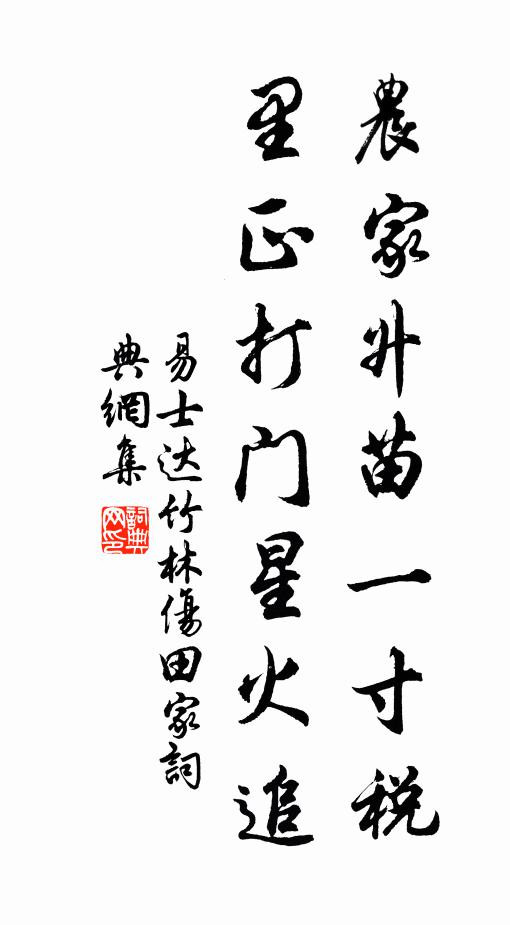 農家升苗一寸税
里正打门星火追
易士达竹林傷田家詞
典網集
詞典网印